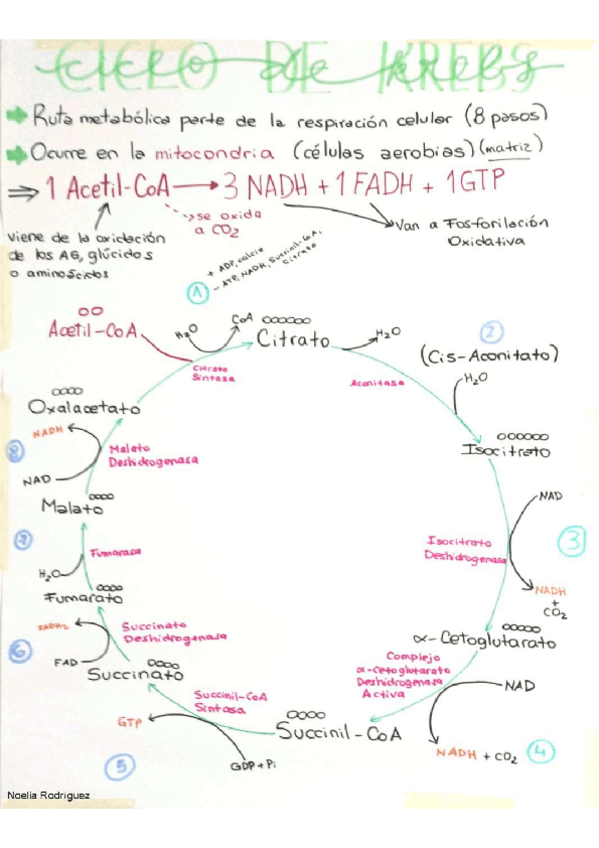 CICLO DE KREBS
Ruta metabólica parte de la respiración celular (8 pasos)
Ocurre en la mitocondria (células aerobias) (matriz)
⇒ 1 Acetil-CoA → 3 NADH + 1 FADH + 1 GTP
se oxida
a CO2
Van a Fosforilación
Oxidativa
Viene de la oxidación
de los AG, glúcidos
o aminoácidos
+ ADP, calcio
- ATP, NADH, Succinil-CoA,
Citrato
1
Acetil-CoA
H2O
CoA
Citrato
H2O
Citrato
Sintasa
Aconitasa
2
(Cis-Aconitato)
H2O
Isocitrato
NAD
Isocitrato
Deshidrogenasa
3
NADH
+
CO2
α-Cetoglutarato
Complejo
α-Cetoglutarato
Deshidrogenasa
Activa
NAD
NADH + CO2
4
Succinil-CoA
Succinil-CoA
Sintasa
GTP
GDP+Pi
5
Succinato
Succinato
Deshidrogenasa
FADH2
FAD
6
Fumarato
Fumarasa
H2O
7
Malato
Malato
Deshidrogenasa
NADH
NAD
8
Oxalacetato
Noelia Rodriguez